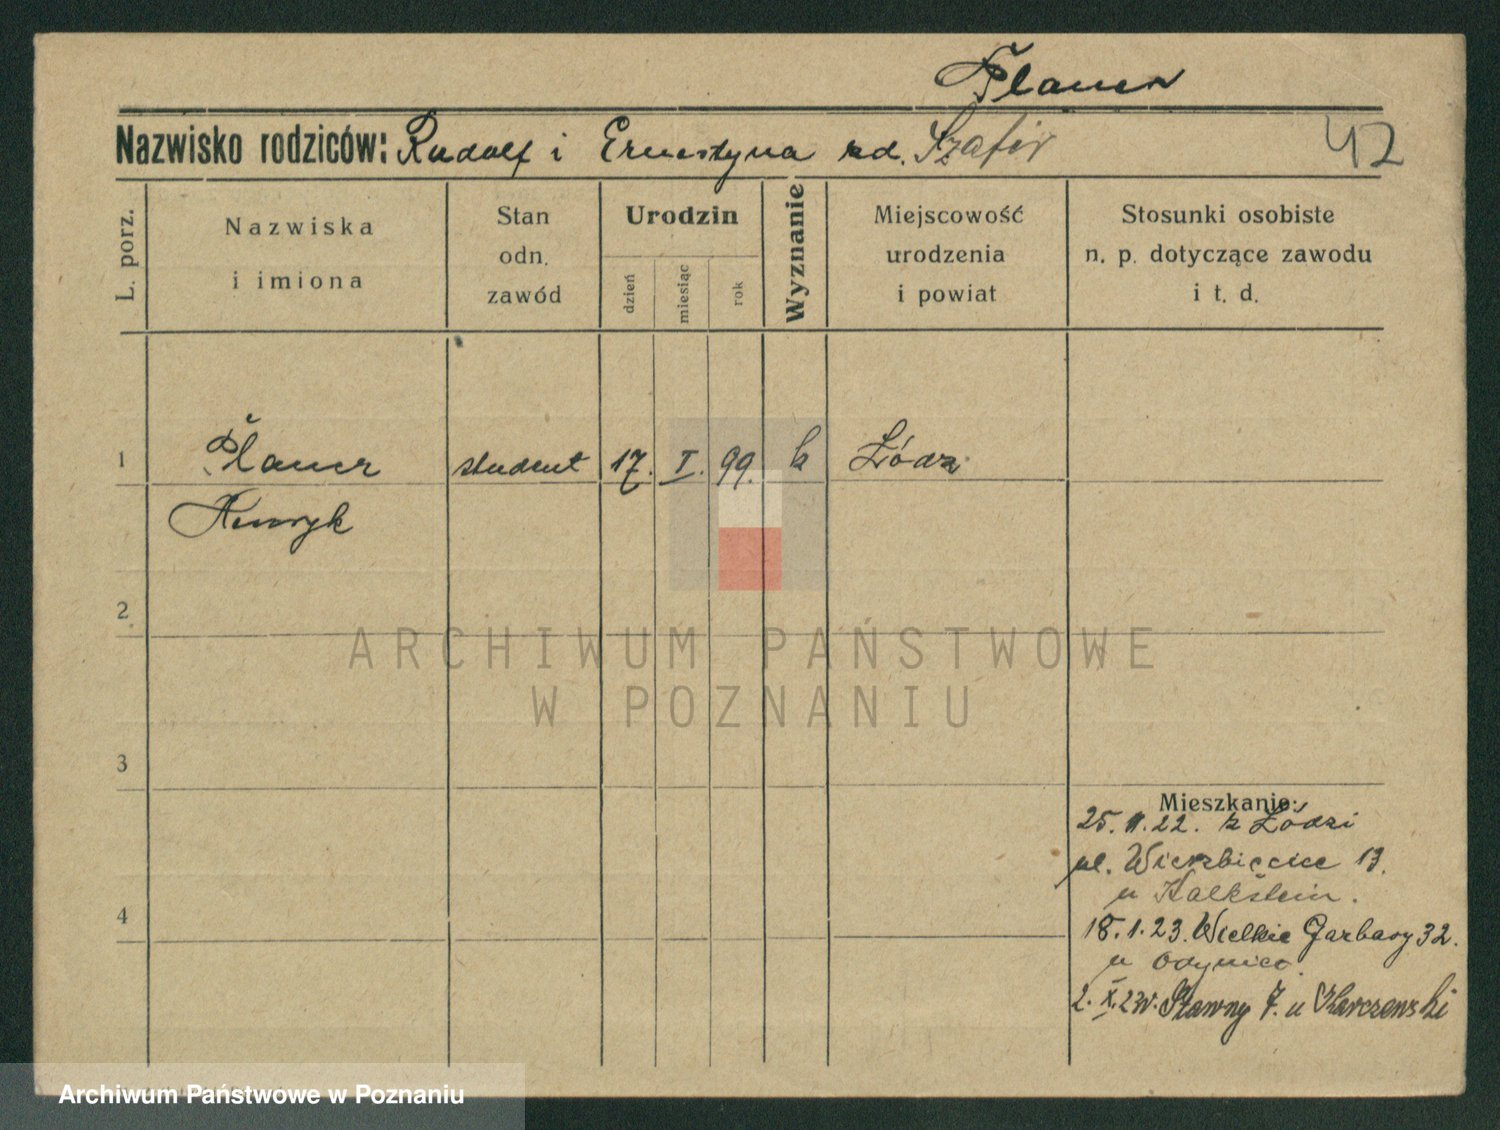 Planer
Nazwisko rodziców: Rudolf i Ernestyna zd. Szafir
42
L. porz.
Nazwiska
i imiona
Stan
odn.
zawód
Urodzin
dzień
miesiąc
rok
Wyznanie
Miejscowość
urodzenia
i powiat
Stosunki osobiste
n. p. dotyczące zawodu
i t. d.
1
Planer student 17. I. 99. k Łódz
Henryk
2
ARCHIWUM PAŃSTWOWE
W POZNANIU
3
Mieszkanie:
25. 11. 22. z Łódzi
ul. Wierzbięcice 13.
u Kalkstein.
4
18. 1. 23. Wielkie Garbary 32.
u Odyniec.
2. X. 23 Stawny 7. u
Archiwum Państwowe w Poznaniu